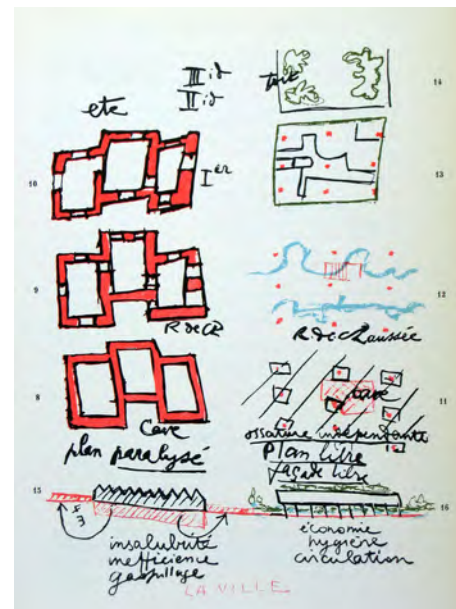 etc
III id
II id
10
Ier
9
R de Ch
8
Cave
plan paralysé
toit
14
13
12
R de Chaussée
11
cave
ossature indépendante
Plan libre
façade libre
15
16
insalubrité
inefficience
gaspillage
économie
hygiène
circulation
LA VILLE